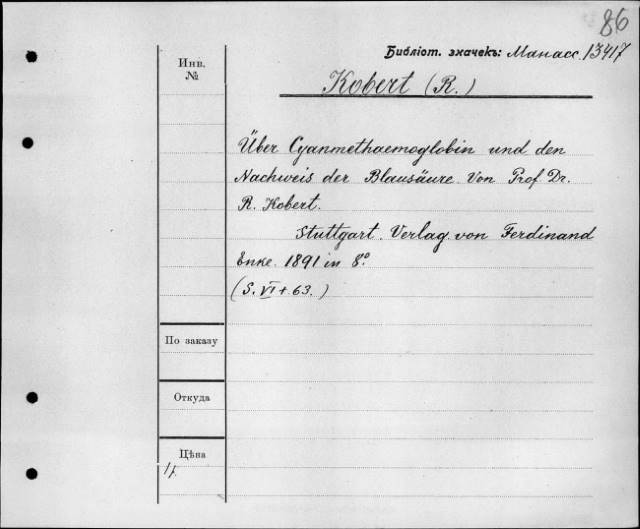 86
Библіот. значекъ: Манасс. 13417
Инв.
№
Kobert (R.)
Über Cyanmethaemoglobin und den
Nachweis der Blausäure. Von Prof Dr.
R. Kobert.
Stuttgart. Verlag von Ferdinand
Enke. 1891 in 8º
(S. VI + 63.)
По заказу
Откуда
Цѣна